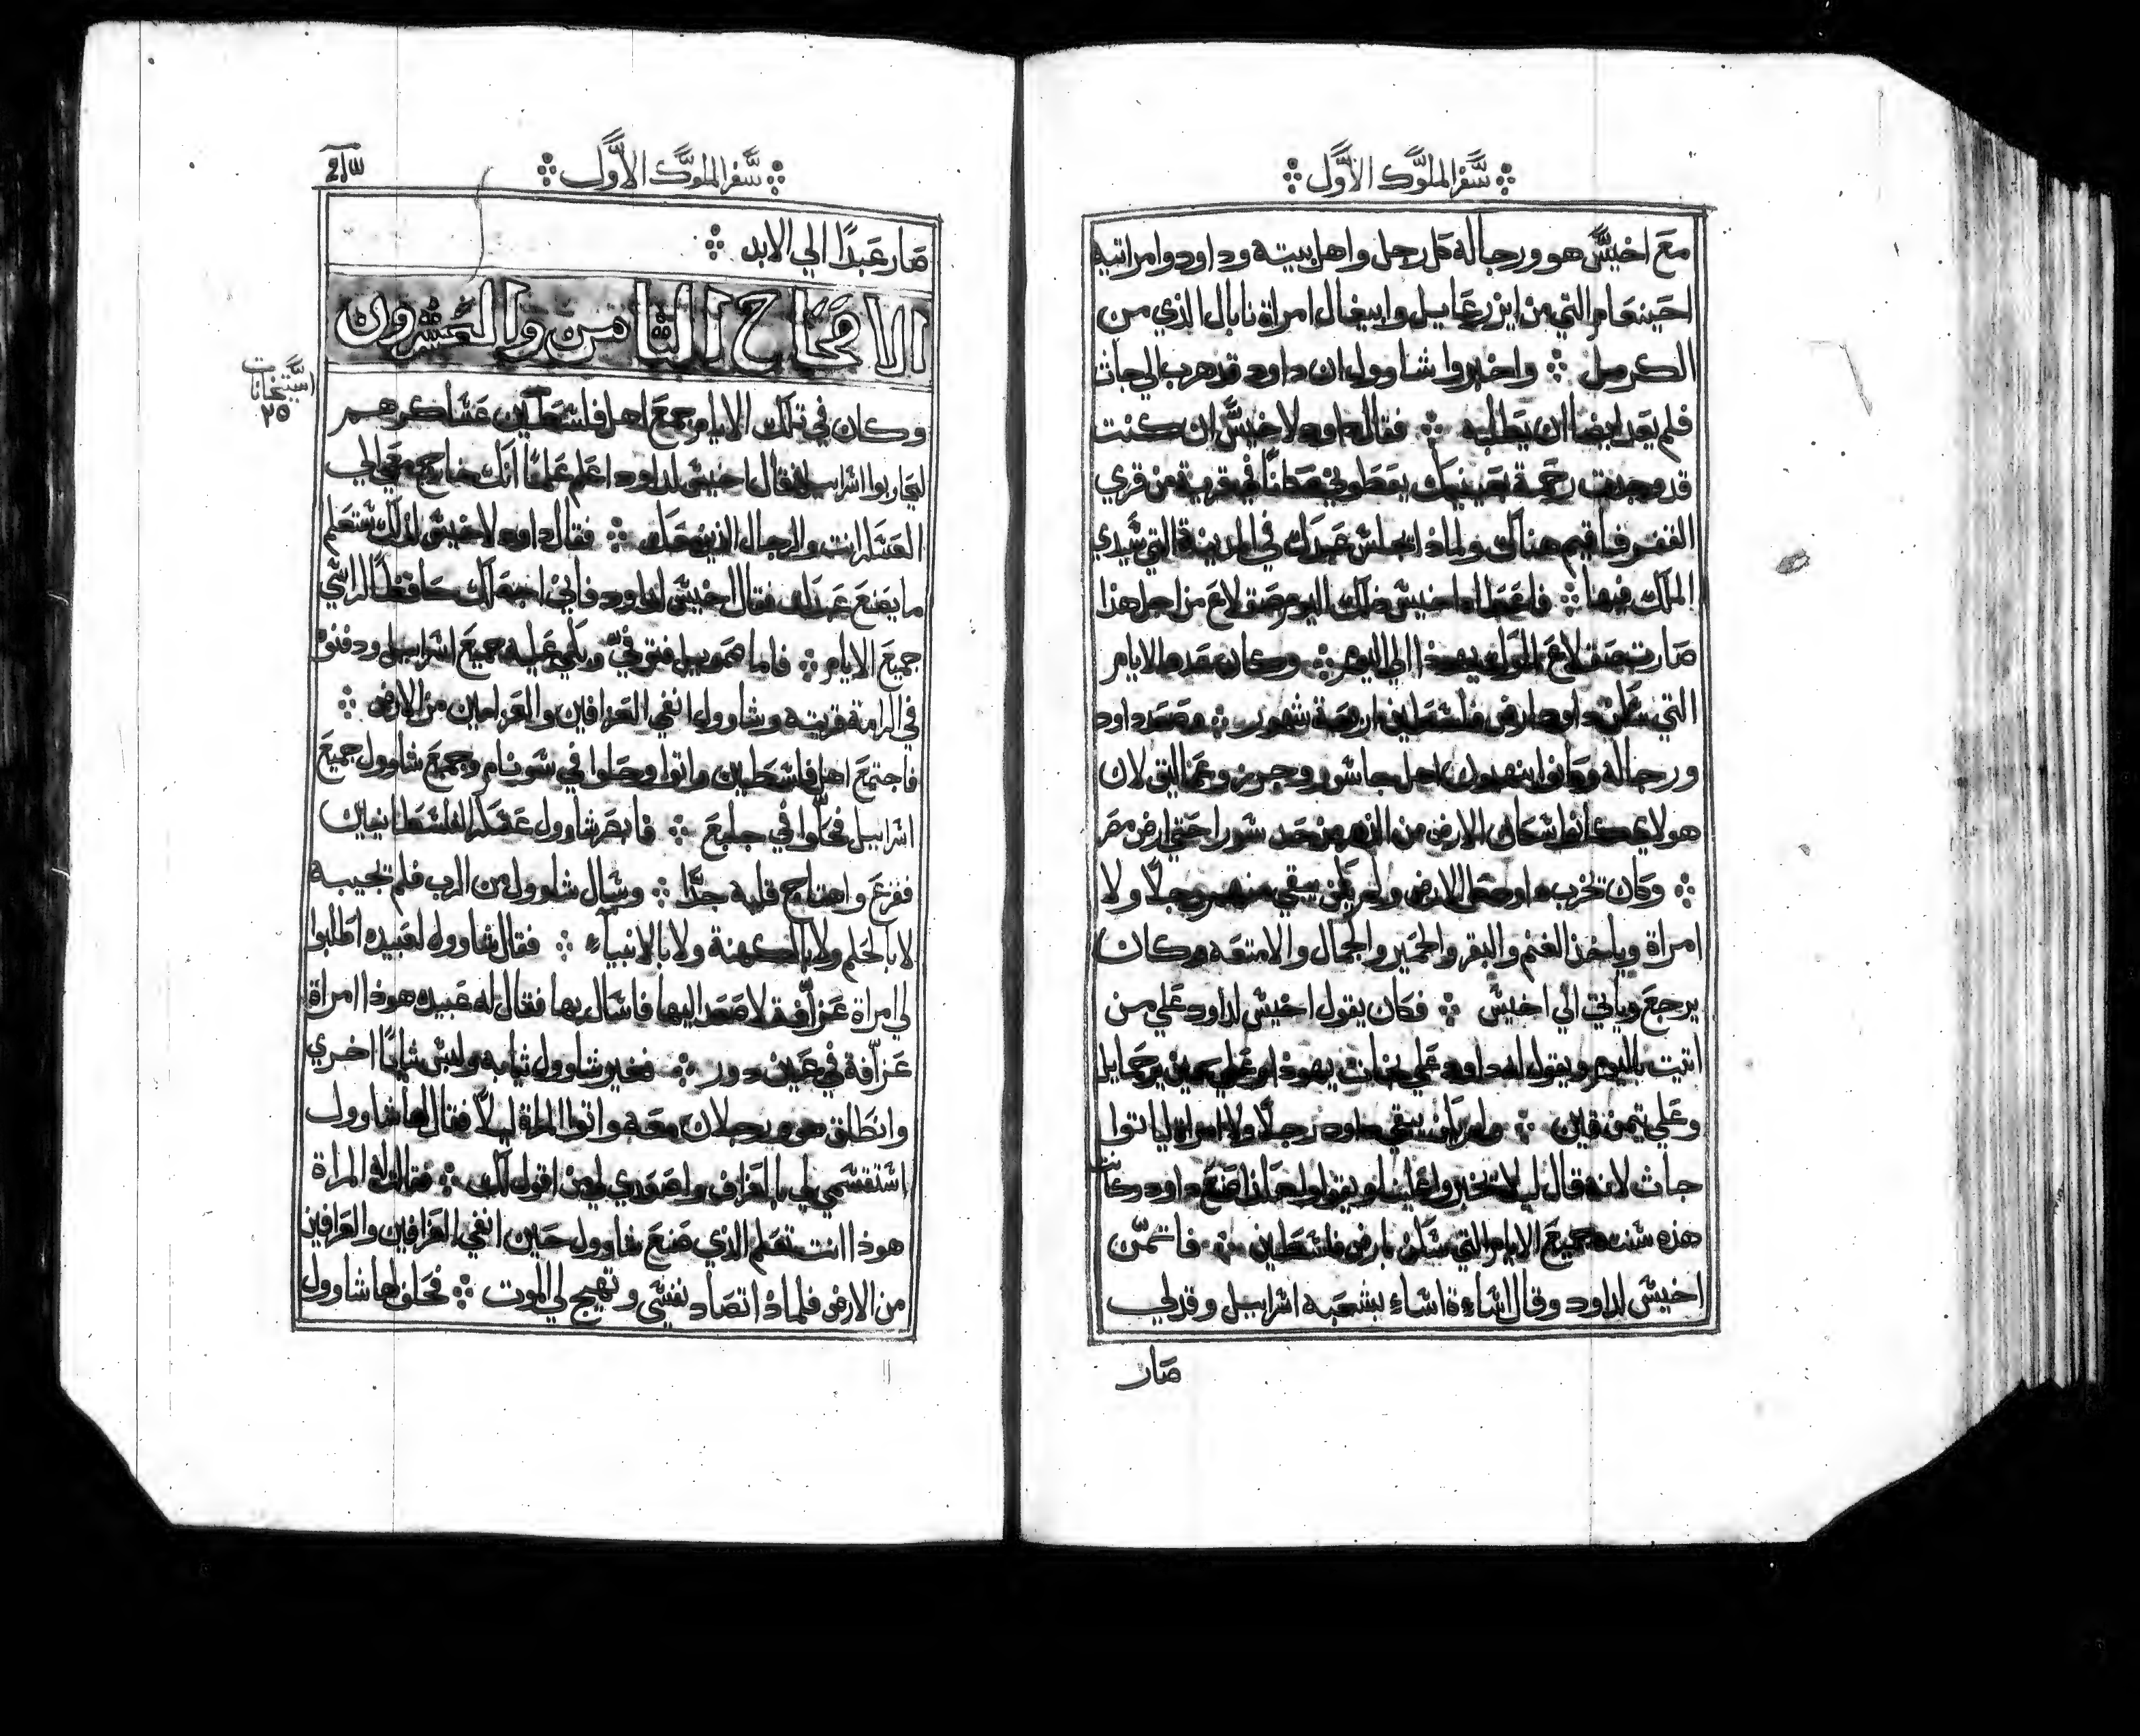 سفر الملوك الاول
مع اخيش هو ورجاله كل رجل واهل بيته وداود وامراتيه
احينعام التي من ايزرعايل وابيغال امراة نابال الذي من
الكرمل واخبروا شاوول ان داود قد هرب الي جاث
فلم يعد ايضا ان يطلبه فقال داود لاخيش ان كنت
قد وجدت رحمة بعينيك يعطوني مكانا في قرية من قري
القفر فاقيم هناك ولماذا يجلس عبدك في المدينة التي سيدي
الملك فيها فاعطاه اخيش ذلك اليوم صقلاغ من اجل هذا
صارت صقلاغ لملوك يهوذا الي اليوم وكان عدد الايام
التي سكن داود ارض فلسطين اربعة شهور وصعد داود
ورجاله وكانوا ينهبون اهل جاشور وجرز وعماليق لان
هولاي كانوا سكان الارض من الدهر من حد سورا حتي ارض مصر
وكان يخرب داود كل الارض ولم يكن يبقي منهم رجلا ولا
امراة وياخذ الغنم والبقر والحمير والجمال والامتعه وكان
يرجع وياتي الي اخيش فكان يقول اخيش لداود علي من
اتيت اليوم ويقول له داود علي يمين يهوذا وعلي يمين يرحمايل
وعلي تيمن قين ولم يكن يبقي داود رجلا ولا امراة ليا توا
جاث لانه قال ليلا يخبروا علينا ويقولوا هكذا صنع داود وكانت
هذه سنته جميع الايام التي سكن بارض فلسطين فاتمن
اخيش لداود وقال اشاءة اشاء بشعبه اشراييل وقد لي
صار
سفر الملوك الاول
صار عبدا الي الابد
الاصحاح الثامن والعشرون
استيخانات
٢٥
وكان في تلك الايام جمع اهل فلسطين عساكرهم
ليحاربوا اشراييل فقال اخيش لداود اعلم علما انك خارج معي الي
العسكر انت والرجال الذين معك فقال داود لاخيش لذلك ستعلم
ما يصنع عبدك فقال اخيش لداود فاني اجعلك حافظا لراسي
جميع الايام فاما صمويل فتوفي وبكي عليه جميع اشراييل ودفنوه
في الرامة قريته وشاوول انفي العرافين والعزامين من الارض
فاجتمع اهل فلسطين واتوا وحلوا في سونام وجمع شاوول جميع
اشراييل فحلوا في جلبع فابصر شاوول عسكر الفلسطانيين
ففزع واهتاج قلبه جدا وسال شاوول من الرب فلم تجيبه
لا بالحلم ولا بالكهنة ولا بالانبياء فقال شاوول لعبيده اطلبوا
لي امراة عرافة لاصعد اليها فاسال بها فقال له عبيده هوذا امراة
عرافة في عين دور فغير شاوول ثيابه ولبس ثيابا اخري
وانطلق هو ورجلان معه واتوا المراة ليلا فقال لها شاوول
استقسمي لي بالعراف واصعدي لي من اقول لك فقالت له المراة
هوذا انت تعلم الذي صنع شاوول حين انفي العرافين والعرافين
من الارض فلماذا تصاد نفسي وتهيج لي الموت فحلف لها شاوول